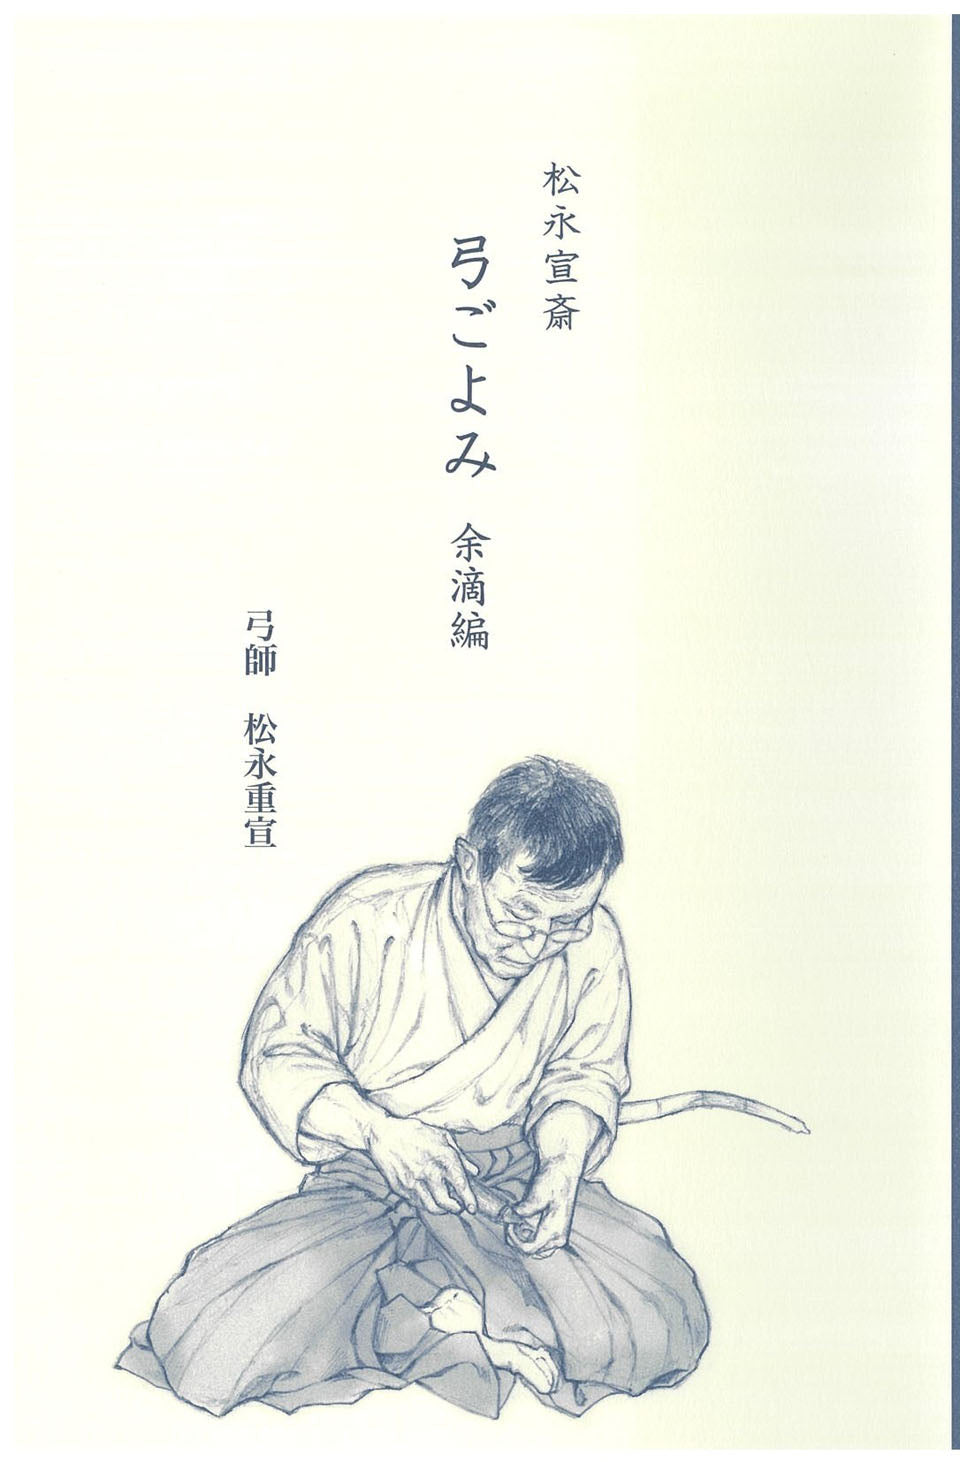 松永宣斎
弓ごよみ 余滴編
弓師 松永重宣